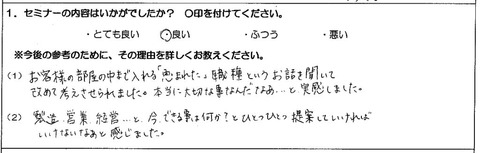 1．セミナーの内容はいかがでしたか？ ○印を付けてください。
・とても良い ・良い ・ふつう ・悪い
※今後の参考のために、その理由を詳しくお教えください。
(1) お客様の部屋の中まで入れる「恵まれた」職種というお話を聞いて
改めて考えさせられました。本当に大切な事なんだなあ…と実感しました。
(2) 製造、営業、経営…と、今、できる事は何か？とひとつひとつ提案していければ
いけないなあと感じました。